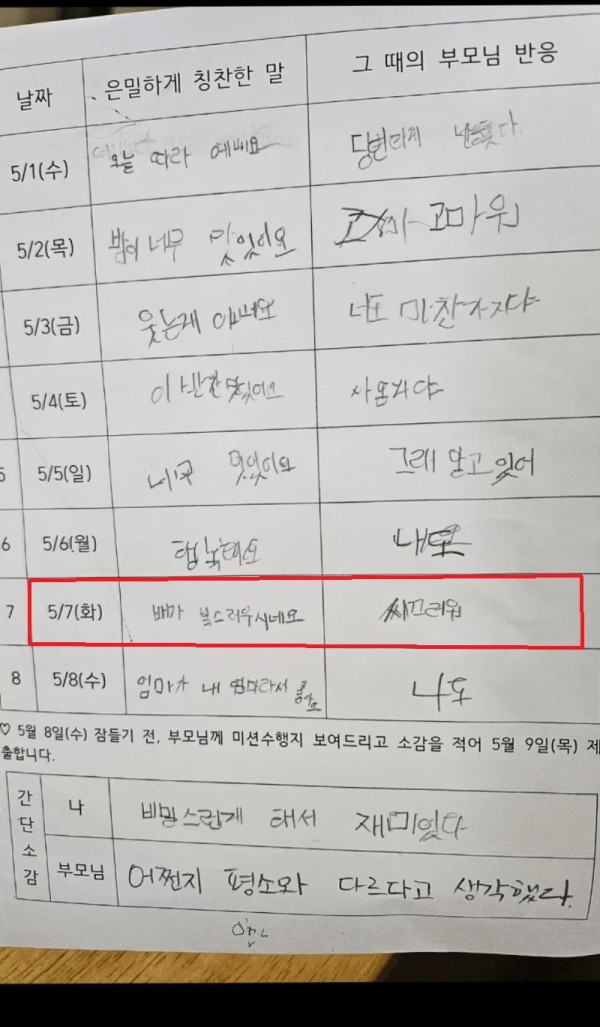 날짜 은밀하게 칭찬한 말 그 때의 부모님 반응
5/1(수) 오늘 따라 예뻐요
5/2(목) 밥이 너무 맛있어요 고마워
5/3(금) 웃는게 너도 마찬가지야
5/4(토) 이 반찬 맛있어요
5 5/5(일) 멋있어요 그래 알고 있어
6 5/6(월)
7 5/7(화) 배가 복스러우시네요 씨끄러워
8 5/8(수) 엄마가 내 엄마라서 나도
♡ 5월 8일(수) 잠들기 전, 부모님께 미션수행지 보여드리고 소감을 적어 5월 9일(목) 제
출합니다.
간단소감
나 비밀스럽게 해서 재미있다
부모님 어쩐지 평소와 다르다고 생각했다.